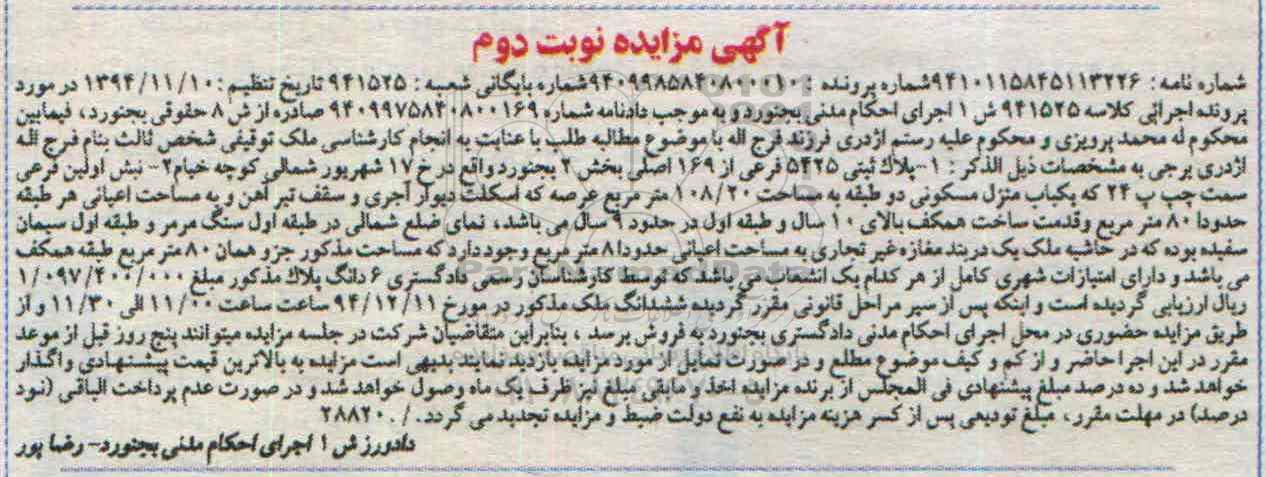 آگهی مزایده نوبت دوم
شماره نامه: ۹۴۱۰۱۱۵۸۴۵۱۱۳۲۲۶ شماره پرونده: ۹۴۰۹۹۸۵۸۴۰۸۰۰۰۱۰ شماره بایگانی شعبه: ۹۴۱۵۲۵ تاریخ تنظیم: ۱۳۹۴/۱۱/۱۰ در مورد
پرونده اجرائی کلاسه ۹۴۱۵۲۵ ش ۱ اجرای احکام مدنی بجنورد و به موجب دادنامه شماره ۹۴۰۹۹۷۵۸۴۰۸۰۰۱۶۹ صادره از ش ۸ حقوقی بجنورد، فیمابین
محکوم له محمد پرویزی و محکوم علیه رستم اژدری فرزند فرج اله با موضوع مطالبه طلب با عنایت به انجام کارشناسی ملک توقیفی شخص ثالث بنام فرج اله
اژدری برجی به مشخصات ذیل الذکر: ۱- پلاک ثبتی ۵۴۲۵ فرعی از ۱۶۹ اصلی بخش ۲ بجنورد واقع در خ ۱۷ شهریور شمالی کوچه خیام ۲- نبش اولین فرعی
سمت چپ پ ۲۴ که یکباب منزل مسکونی دو طبقه به مساحت ۱۰۸/۲۰ متر مربع عرصه که اسکلت دیوار آجری و سقف تیر آهن و به مساحت اعیانی هر طبقه
حدودا ۸۰ متر مربع وقدمت ساخت همکف بالای ۱۰ سال و طبقه اول در حدود ۹ سال می باشد، نمای ضلع شمالی در طبقه اول سنگ مرمر و طبقه اول سیمان
سفیده بوده که در حاشیه ملک یک دربند مغازه غیر تجاری به مساحت اعیانی حدودا ۸ متر مربع وجود دارد که مساحت مذکور جزو همان ۸۰ متر مربع طبقه همکف
می باشد و دارای امتیازات شهری کامل از هر کدام یک انشعاب می باشد که توسط کارشناسان رسمی دادگستری ۶ دانگ پلاک مذکور مبلغ ۱/۰۹۷/۴۰۰/۰۰۰
ریال ارزیابی گردیده است و اینکه پس از سیر مراحل قانونی مقرر گردیده ششدانگ ملک مذکور در مورخ ۹۴/۱۲/۱۱ ساعت ساعت ۱۱/۰۰ الی ۱۱/۳۰ و از
طریق مزایده حضوری در محل اجرای احکام مدنی دادگستری بجنورد به فروش برسد، بنابراین متقاضیان شرکت در جلسه مزایده میتوانند پنج روز قبل از موعد
مقرر در این اجرا حاضر و از کم و کیف موضوع مطلع و در صورت تمایل از مورد مزایده بازدید نمایند بدیهی است مزایده به بالاترین قیمت پیشنهادی واگذار
خواهد شد و ده درصد مبلغ پیشنهادی فی المجلس از برنده مزایده اخذ و مابقی مبلغ نیز ظرف یک ماه وصول خواهد شد و در صورت عدم پرداخت الباقی (نود
درصد) در مهلت مقرر، مبلغ تودیعی پس از کسر هزینه مزایده به نفع دولت ضبط و مزایده تجدید می گردد. / ۲۸۸۲۰۰
دادورز ش ۱ اجرای احکام مدنی بجنورد- رضا پور